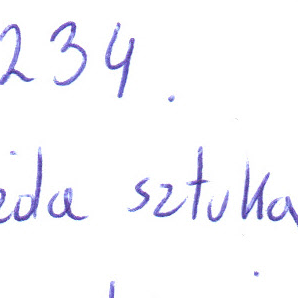 234.
żda sztuka